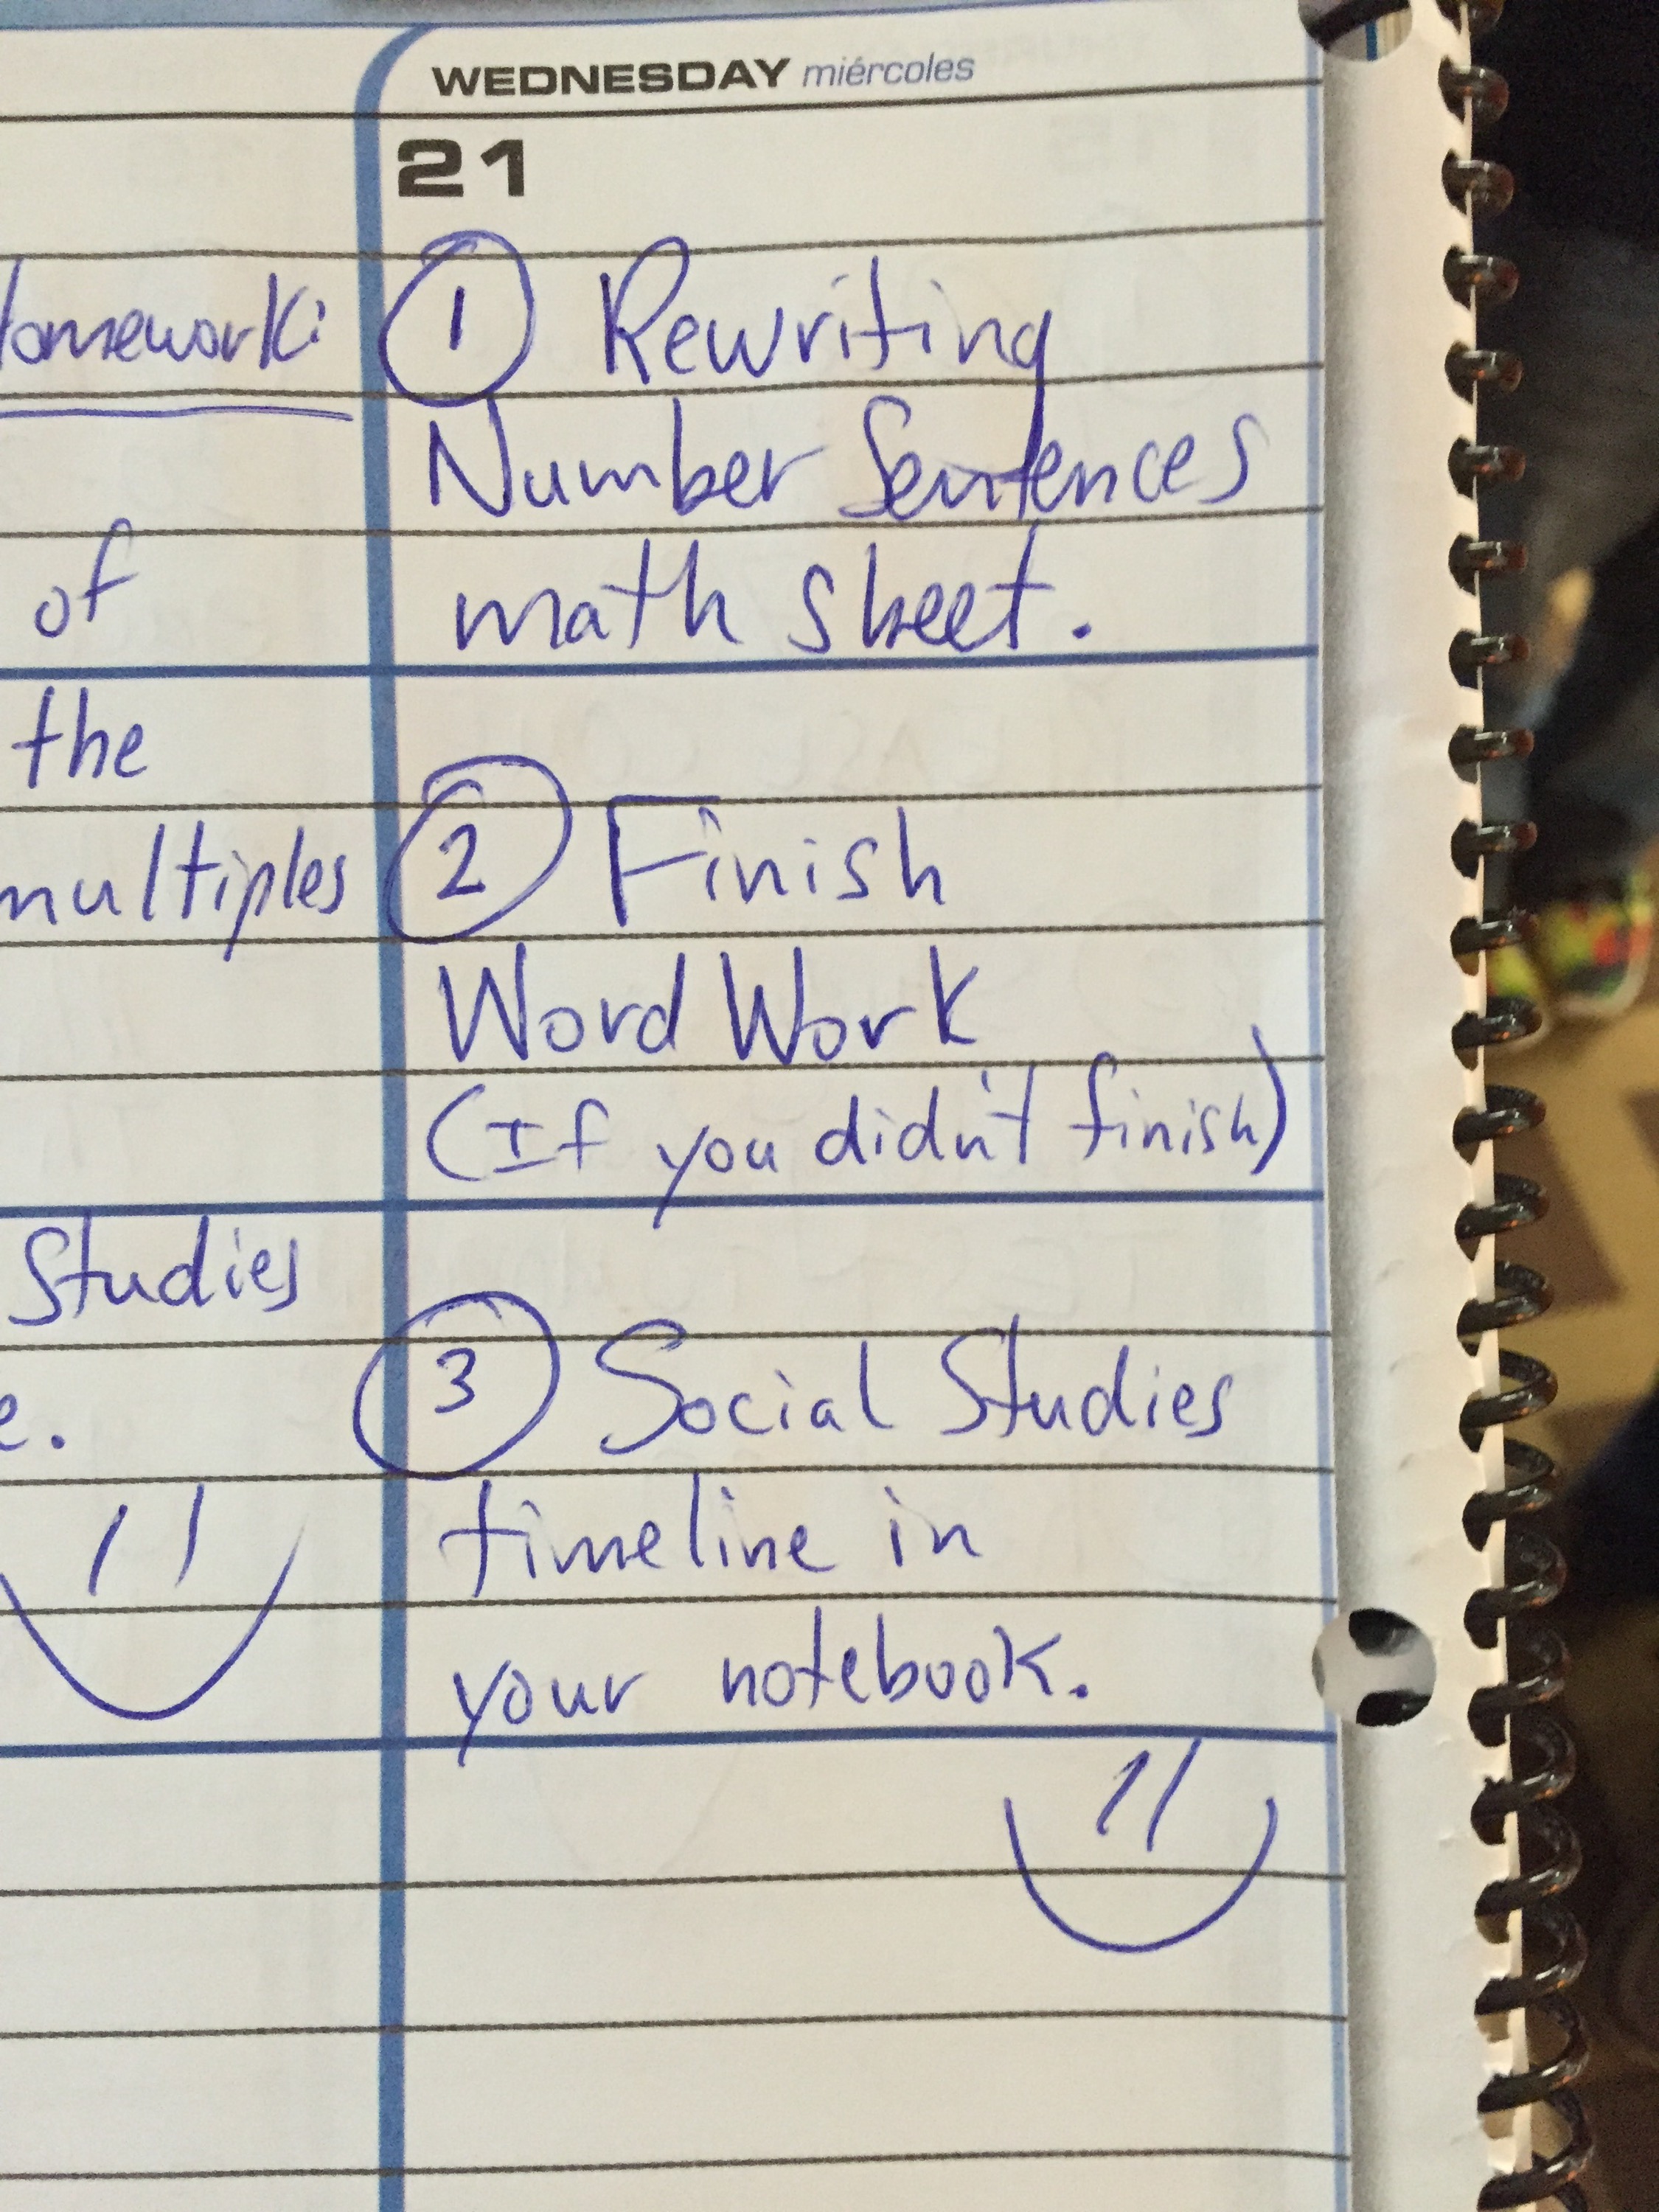 WEDNESDAY miércoles
21
① Rewriting
Number Sentences
math sheet.
② Finish
Word Work
(If you didn't finish)
③ Social Studies
timeline in
your notebook.
Homework:
of
the
multiples
Studies
e.